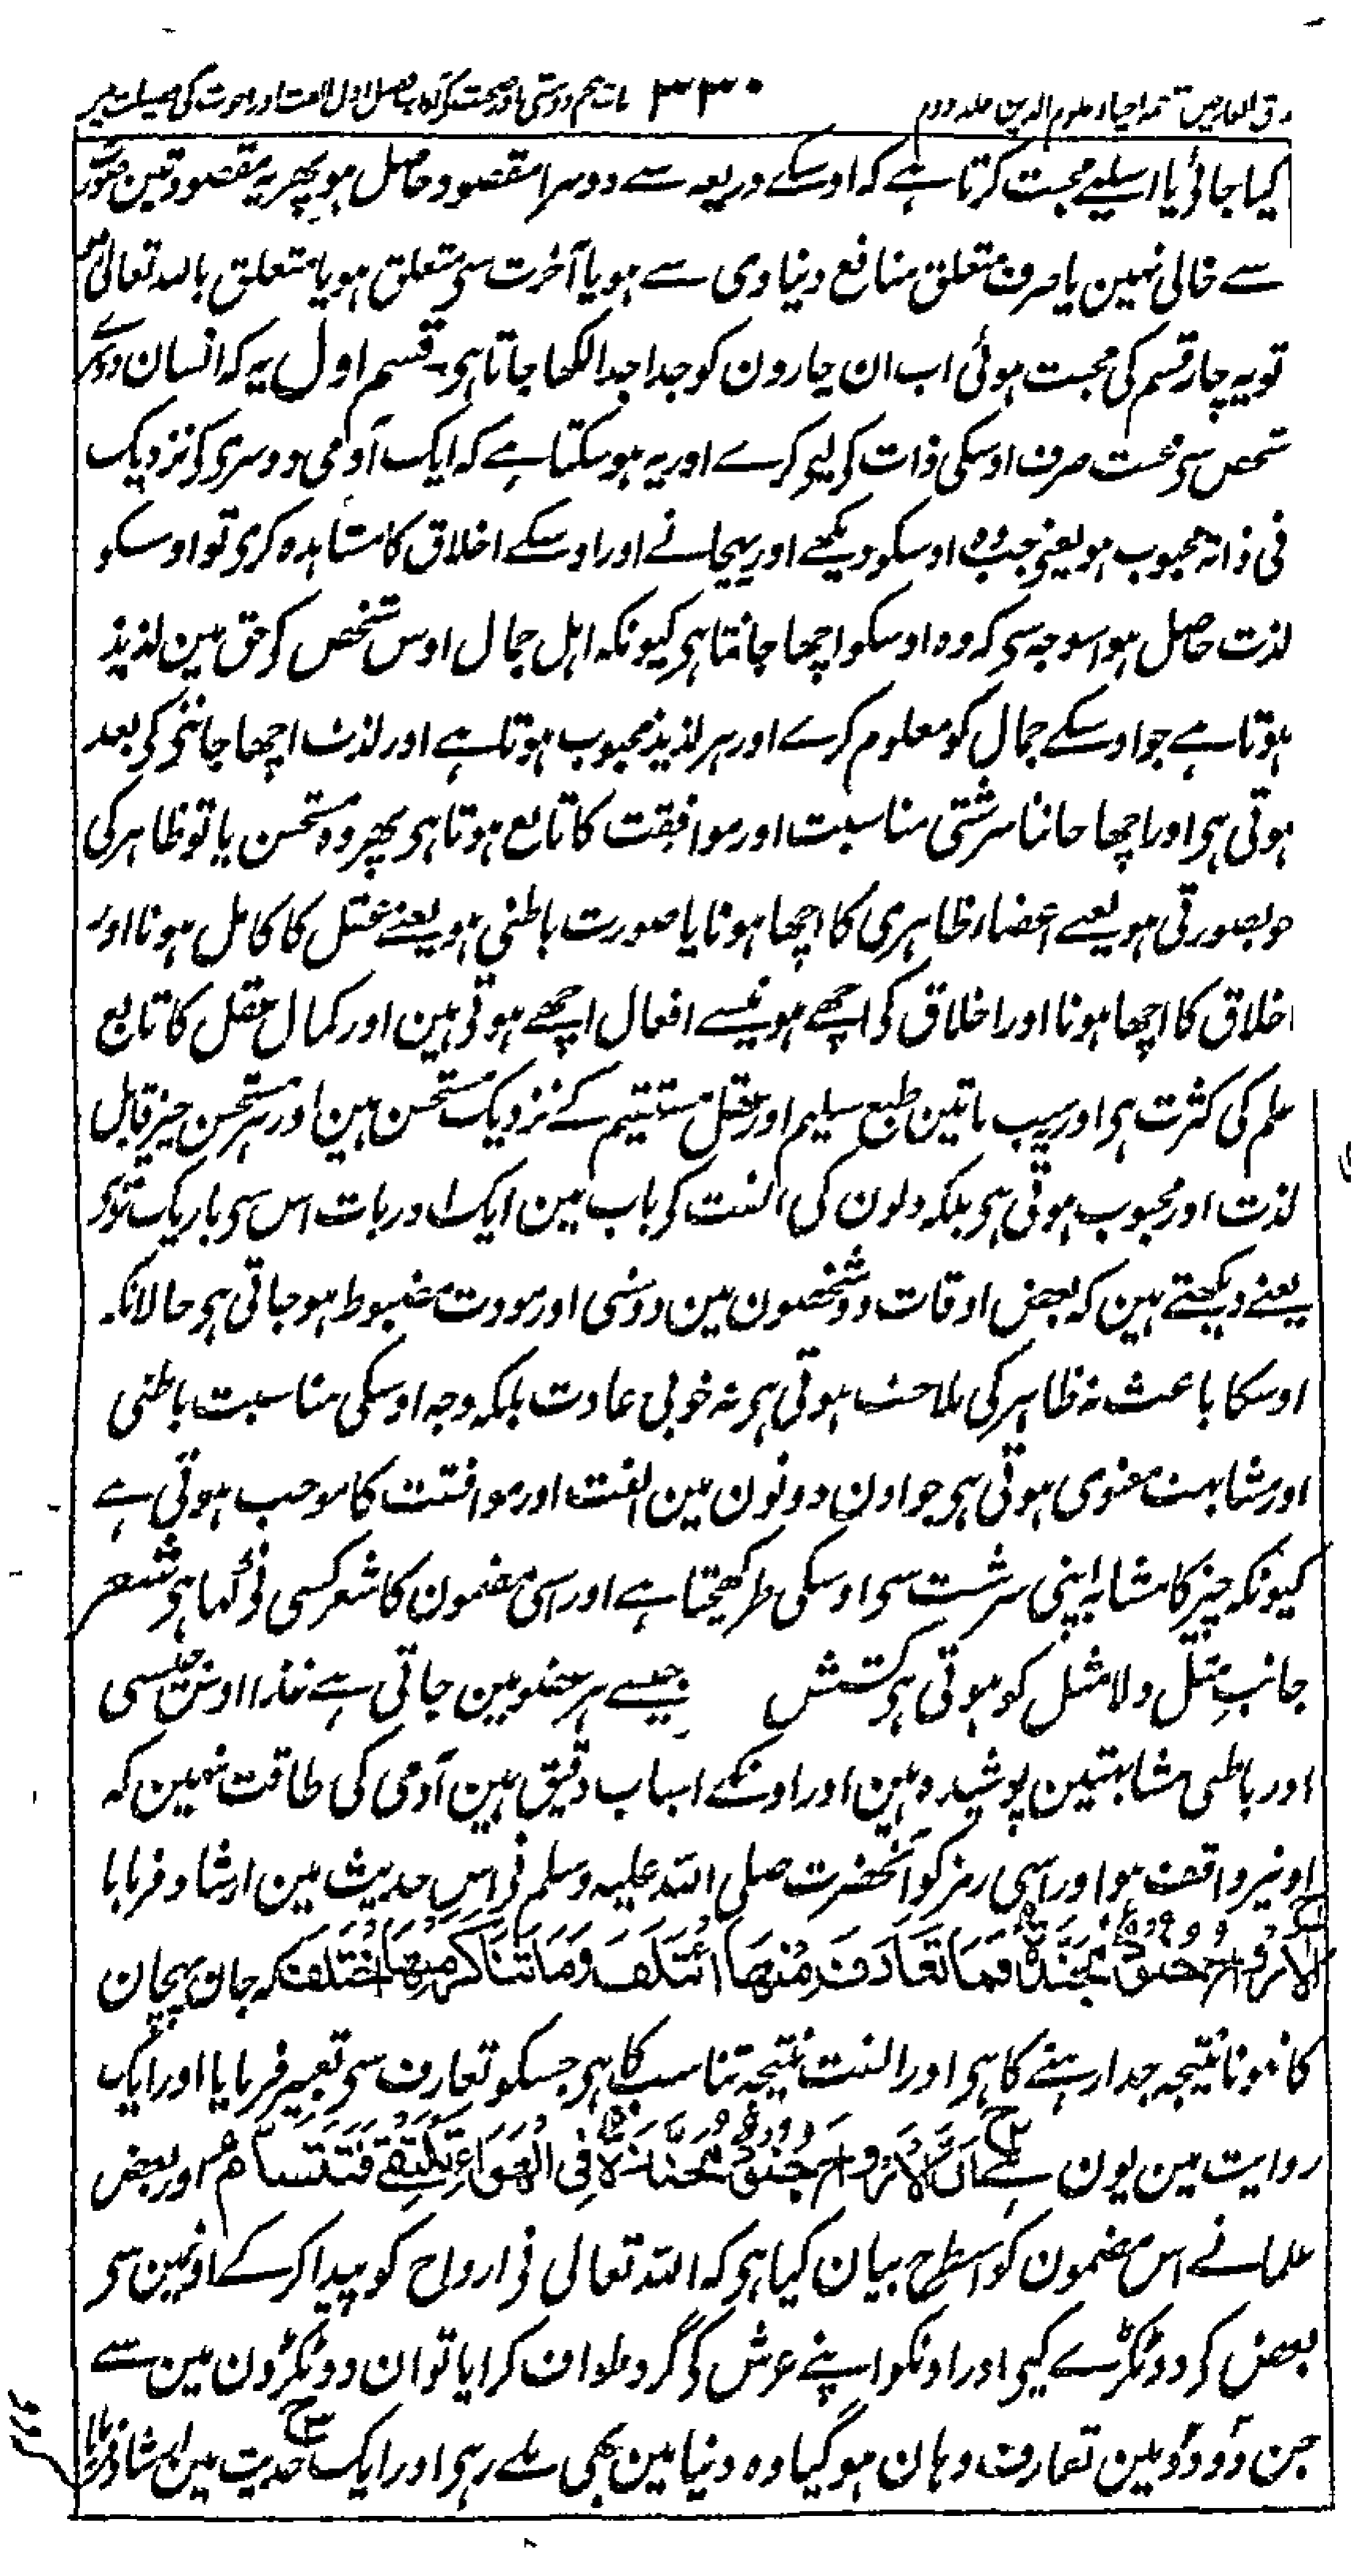 مذاق العارفین ترجمہ احیاء علوم الدین جلد دوم ۳۳۰ باب پنجم دوستی اور صحبت کے آداب فصل اول الفت اور اخوت کی فضیلت میں
کیا جائی یا اسلیے محبت کرتا ہے کہ اوسکے ذریعہ سے دوسرا مقصود حاصل ہو پھر یہ مقصود تین
سے خالی نہین یا صرف متعلق منافع دنیاوی سے ہو یا آخرت سی متعلق ہو یا متعلق باللہ تعالی
تو یہ چار قسم کی محبت ہوئی اب ان چارون کو جدا جدا لکھا جاتا ہی۔ قسم اول یہ کہ انسان دوسرے
شخص سی محبت صرف اوسکی ذات کی لیی کرے اور یہ ہو سکتا ہے کہ ایک آدمی دوسری کی نزدیک
فی ذاتہ محبوب ہو یعنی جب وہ اوسکو دیکھے اور پہچانے اور اوسکے اخلاق کا مشاہدہ کری تو اوسکو
لذت حاصل ہو اسوجہ سی کہ وہ اوسکو اچھا جانتا ہی کیونکہ اہل جمال اوس شخص کی حق مین لذیذ
ہوتا ہے جو اوسکے جمال کو معلوم کرے اور ہر لذیذ محبوب ہوتا ہے اور لذت اچھا جاننی کی بعد
ہوتی ہی اور اچھا جاننا سرشتی مناسبت اور موافقت کا تابع ہوتا ہی پھر وہ مستحسن یا تو ظاہر کی
خوبصورتی ہو یعنے اعضاء ظاہری کا اچھا ہونا یا صورت باطنی ہو یعنے عقل کا کامل ہونا اور
اخلاق کا اچھا ہونا اور اخلاق کی اچھے ہونیسے افعال اچھے ہوتی ہین اور کمال عقل کا تابع
علم کی کثرت ہی اور یہ سب باتین طبع سلیم اور عقل مستقیم کے نزدیک مستحسن ہین اور ہر مستحسن چیز قابل
لذت اور محبوب ہوتی ہی بلکہ دلون کی الفت کی باب مین ایک اور بات اس سی باریک تر ہی
یعنے دیکھتے ہین کہ بعض اوقات دو شخصون مین دوستی اور مودت مضبوط ہو جاتی ہی حالانکہ
اوسکا باعث نہ ظاہر کی ملاحت ہوتی ہی نہ خوبی عادت بلکہ وجہ اوسکی مناسبت باطنی
اور مشابہت معنوی ہوتی ہی جو اون دونون مین الفت اور موافقت کا موجب ہوتی ہے
کیونکہ چیز کا مشابہ اپنی سرشت سی اوسکی طرف کھچتا ہے اور اسی مضمون کا شعر کسی نی کہا ہی شعر
جانبِ مثل ولا مثل کو ہوتی ہی کشش جیسے ہر عضو مین جاتی ہے غذا اوس جنسی
اور باطنی مشابہتین پوشیدہ ہین اور اونکے اسباب دقیق ہین آدمی کی طاقت نہین کہ
اونپر واقف ہو اور اسی رمز کو آنحضرت صلی اللہ علیہ وسلم نی اس حدیث مین ارشاد فرمایا
اَلْاَرْوَاحُ جُنُوْدٌ مُجَنَّدَةٌ فَمَا تَعَارَفَ مِنْهَا ائْتَلَفَ وَمَا تَنَاكَرَ مِنْهَا اخْتَلَفَ کہ جان پہچان
کا نہونا نتیجہ جدا رہنے کا ہی اور الفت نتیجہ تناسب کا ہی جسکو تعارف سی تعبیر فرمایا اور ایک
روایت مین یون ہے اَلْاَرْوَاحُ جُنُوْدٌ مُجَنَّدَةٌ فِی الْهَوَاءِ تَلْتَقِیْ فَتَتَشَامُّ اور بعض
علما نے اس مضمون کو اسطرح بیان کیا ہی کہ اللہ تعالی نی ارواح کو پیدا کرکے اونمین سی
بعض کی دو ٹکڑے کیی اور اونکو اپنے عرش کی گرد طواف کرایا تو ان دو ٹکڑون مین سے
جن دو دو مین تعارف وہان ہو گیا وہ دنیا مین بھی ملے رہی اور ایک حدیث مین ارشاد فرمایا